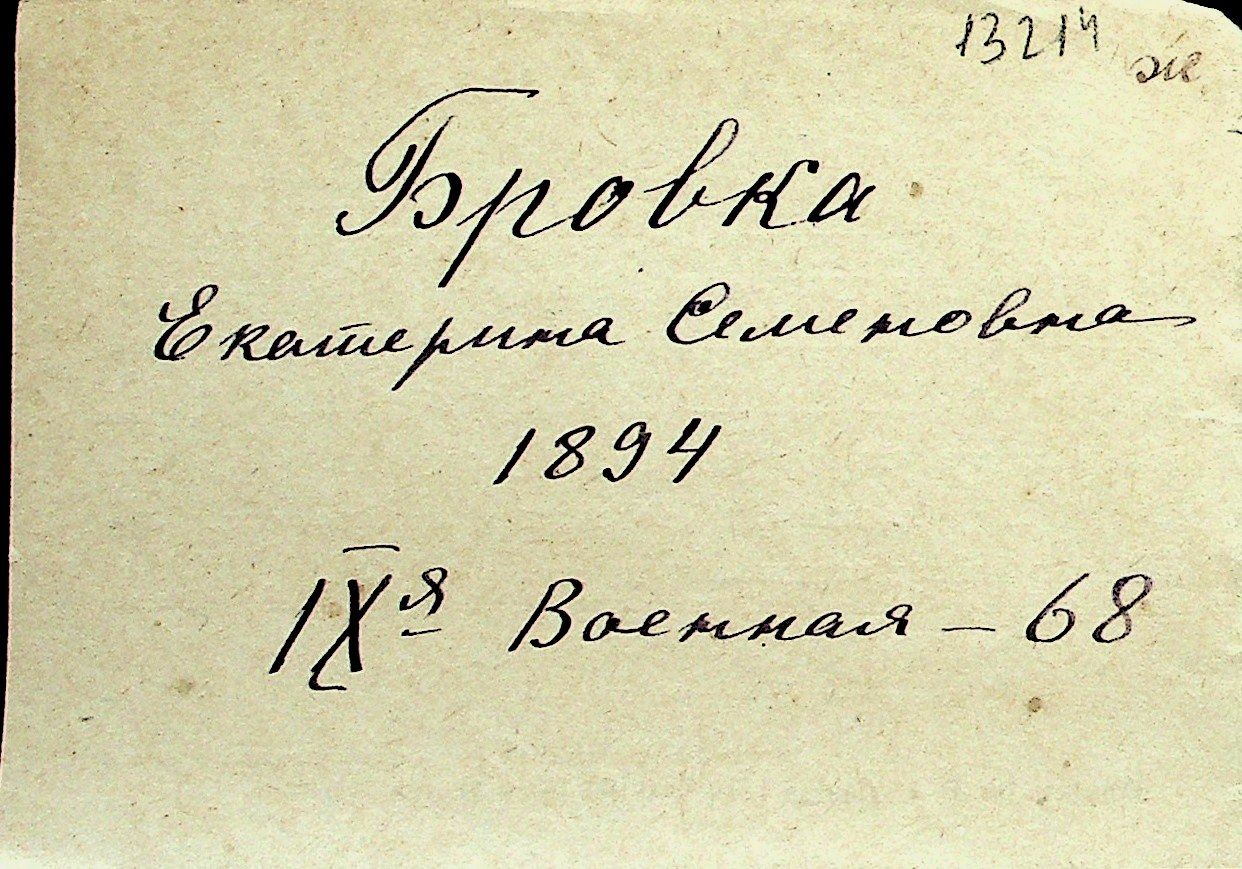 13214 ж
Бровка
Екатерина Семеновна
1894
IXя Военная - 68